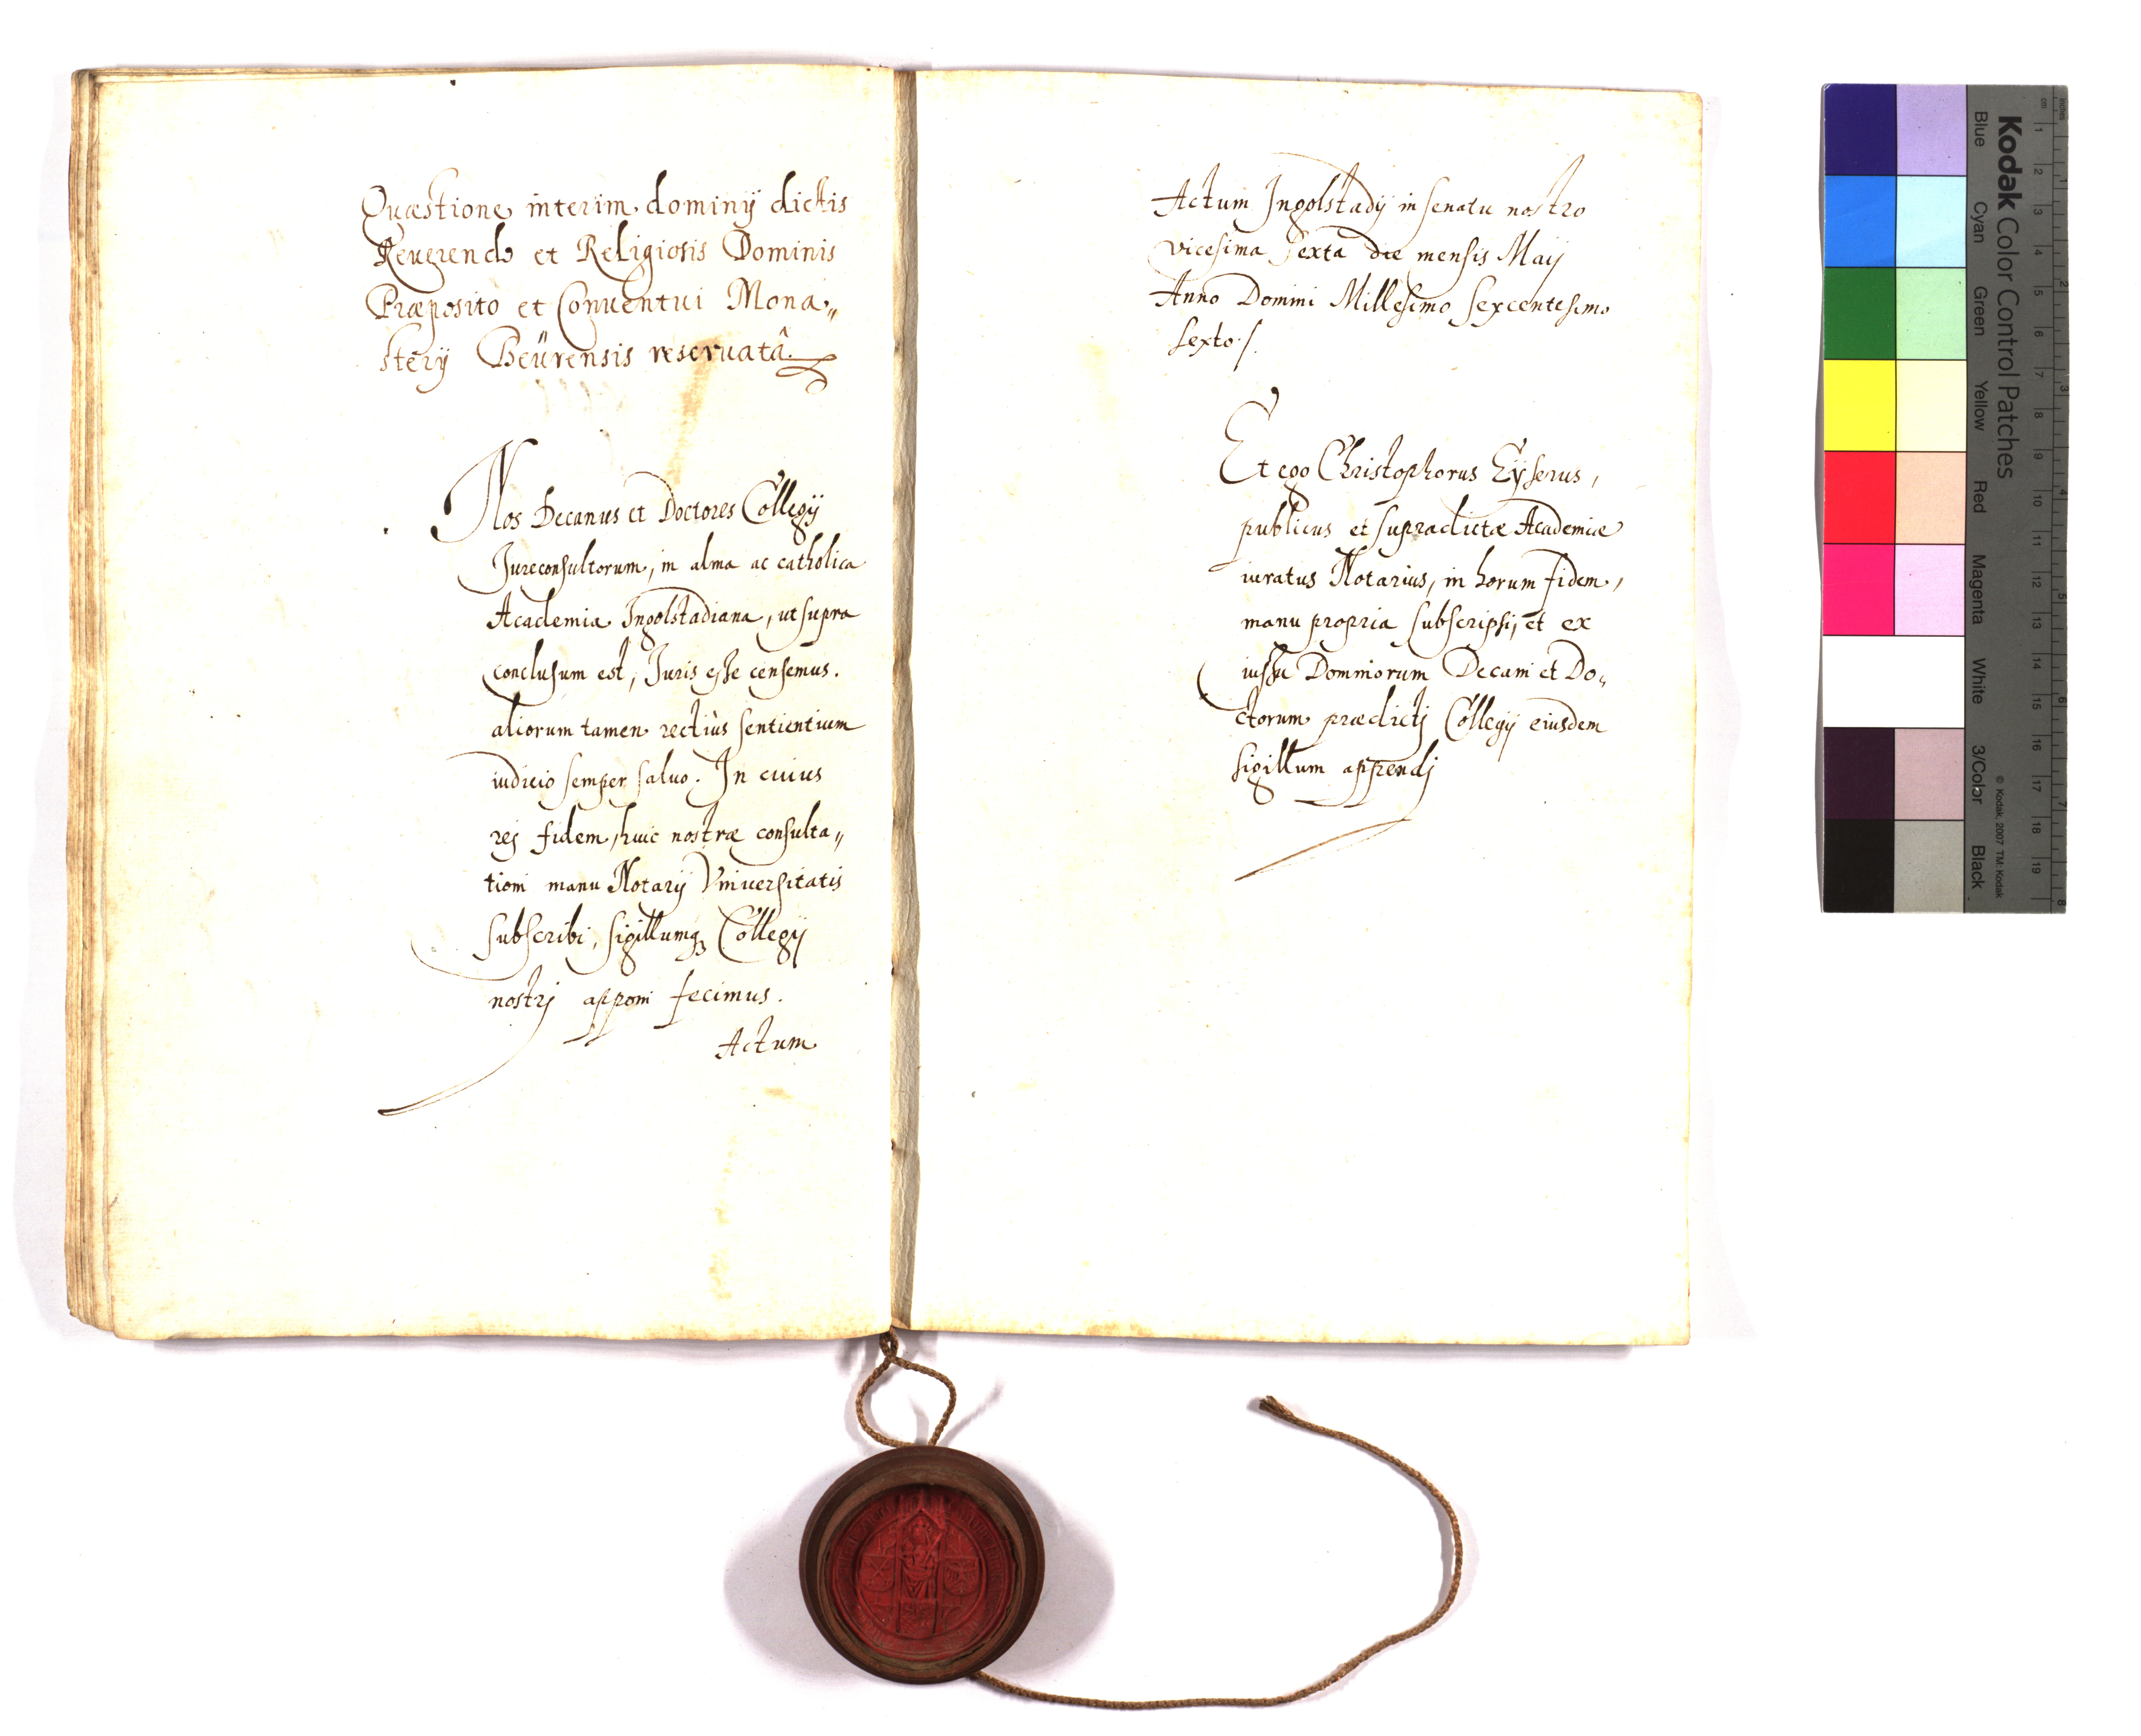 Quæstione interim dominij dictis
Reuerendo et Religiosis Dominis
Præposito et Conuentui Mona„
sterij Beürensis reseruatâ.
Nos Decanus et Doctores Collegij
Jureconsultorum, in alma ac catholica
Academia Ingolstadiana, ut supra
conclusum est, Juris esse censemus.
aliorum tamen rectiùs sentientium
iudicio semper saluo. In cuius
rej fidem, huic nostræ consulta„
tioni manu Notarij Vniuersitatis
subscribi, sigillumq3 Collegij
nostrj apponi fecimus.
Actum
Actum Ingolstadij in senatu nostro
vicesima sexta die mensis Maij
Anno Domini Millesimo sexcentesimo
sexto ./.
Et ego Christophorus Eÿserus,
publicus et supradictæ Academiæ
iuratus Notarius, in horum fidem,
manu propria subscripsi, et ex
iussu Dominorum Decani et Do„
ctorum prædictj Collegij eiusdem
sigillum appendj
Kodak Color Control Patches
Blue Cyan Green Yellow Red Magenta White 3/Color Black
© Kodak, 2007 TM: Kodak
cm 1 2 3 4 5 6 7 8 9 10 11 12 13 14 15 16 17 18 19
inches 1 2 3 4 5 6 7 8